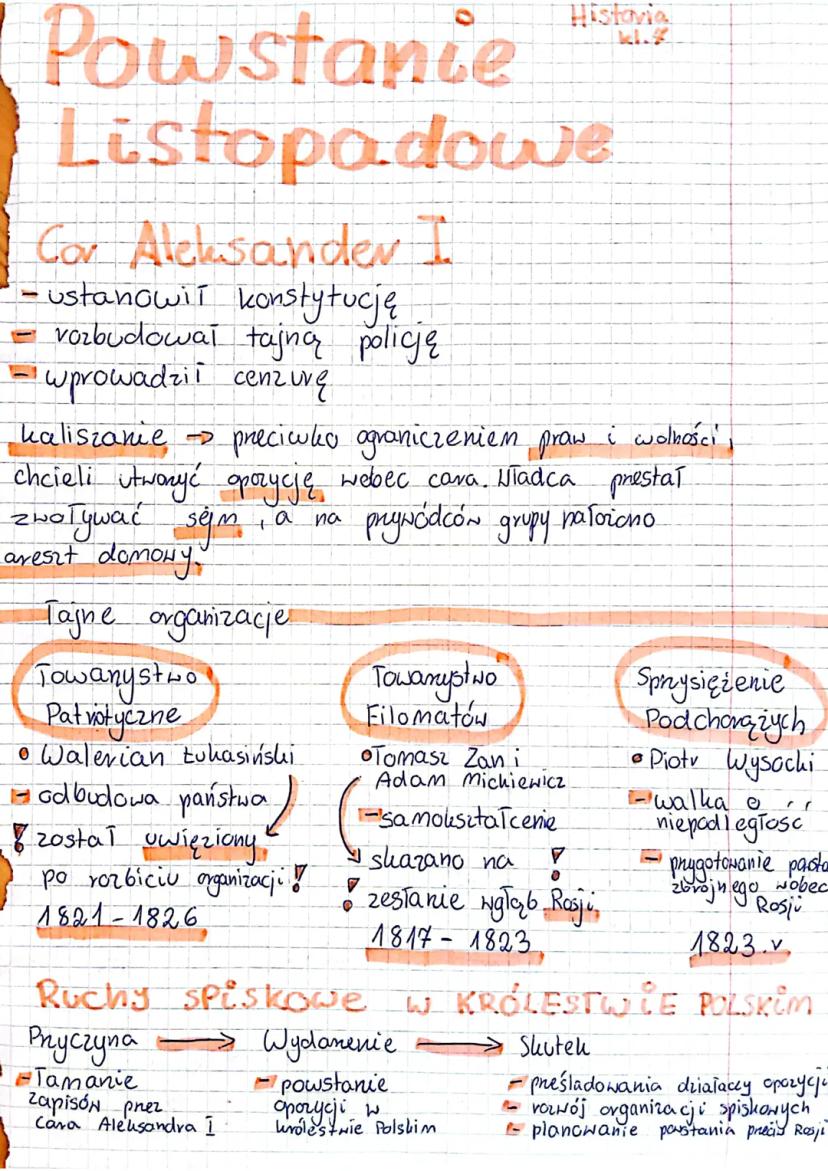 Historia
kl.7
Powstanie
Listopadowe
Car Aleksander I
- ustanowił konstytucję
- rozbudował tajną policję
- wprowadził cenzurę
kaliszanie → przeciwko ograniczeniem praw i wolności,
chcieli utworzyć opozycję wobec cara. Władca przestał
zwoływać sejm, a na przywódców grupy nałożono
areszt domowy.
Tajne organizacje
Towarzystwo
Patriotyczne
• Walerian Łukasiński
- odbudowa państwa
! został uwięziony
po rozbiciu organizacji!
1821 - 1826
Towarzystwo
Filomatów
• Tomasz Zan i
Adam Mickiewicz
- samokształcenie
skazano na !
! zesłanie wgłąb Rosji
1817 - 1823
Sprzysiężenie
Podchorążych
• Piotr Wysocki
- walka o
niepodległość
- przygotowanie
zbrojnego wobec
Rosji
1823.
Ruchy SPISKOWE W KRÓLESTWIE POLSKIM
Przyczyna → Wydarzenie → Skutek
- łamanie
zapisów przez
Cara Aleksandra I
- powstanie
opozycji w
królestwie Polskim
- prześladowania działaczy opozycji
- rozwój organizacji spiskowych
- planowanie powstania Rosji